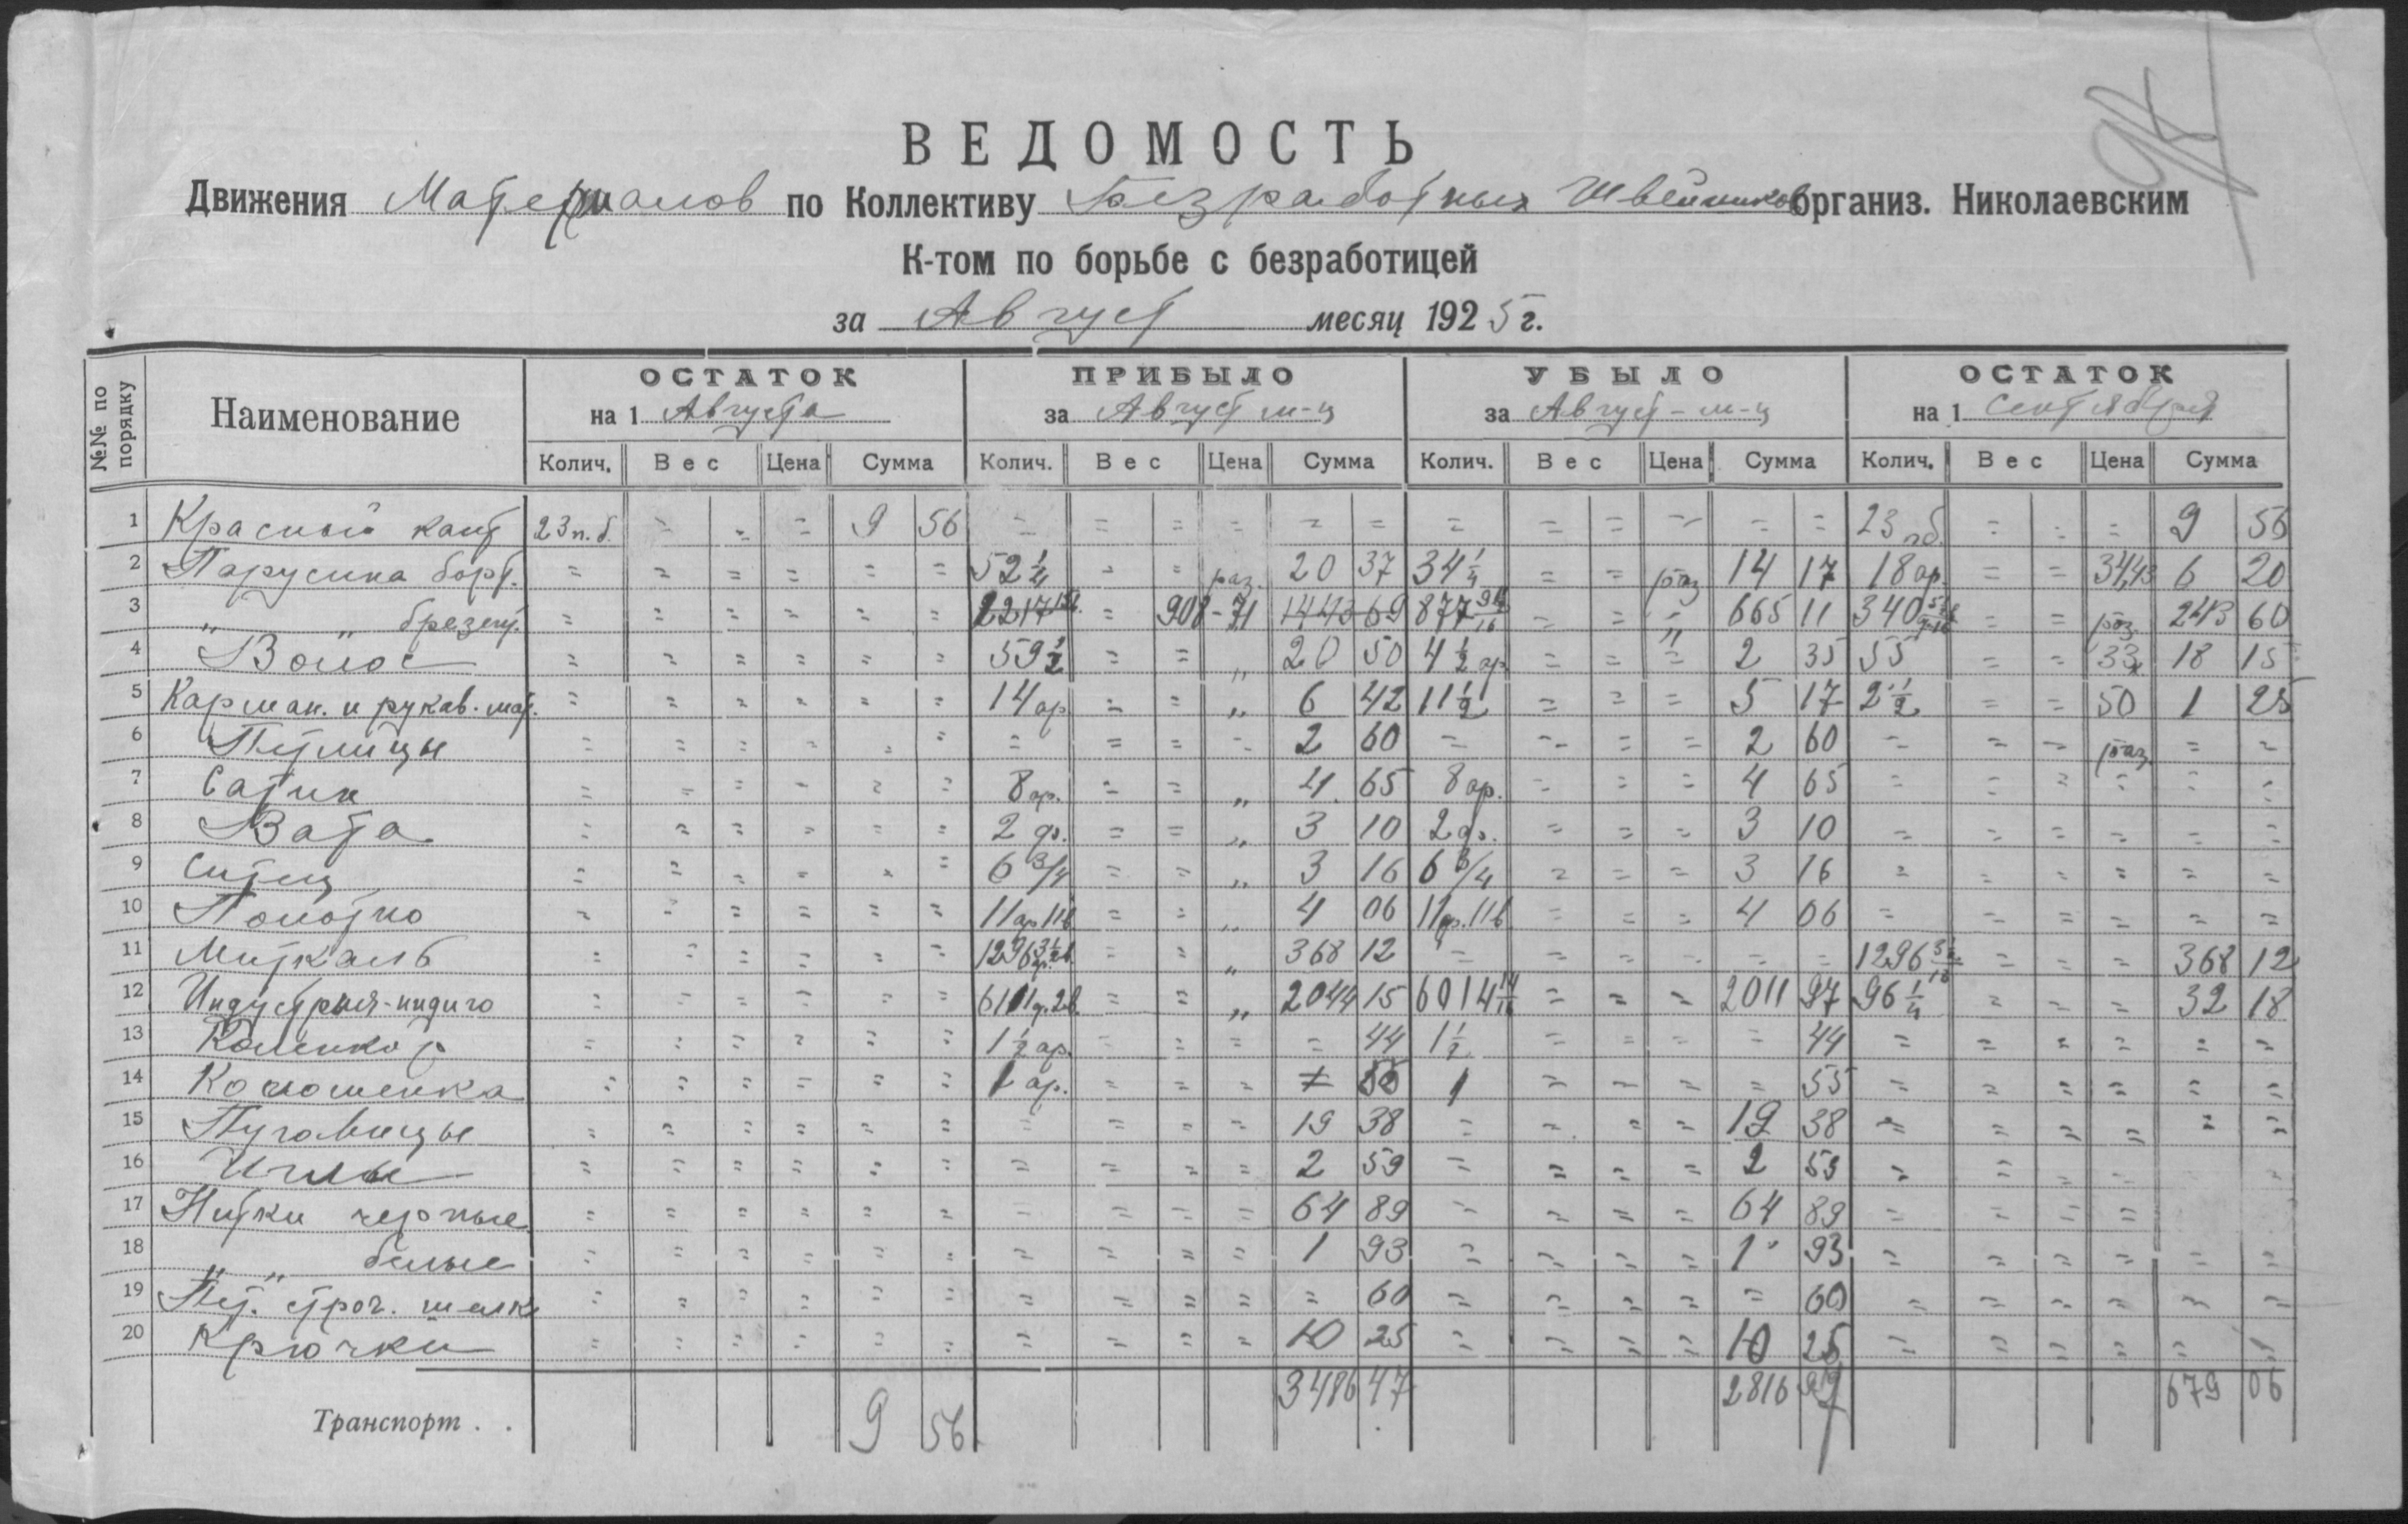 ВЕДОМОСТЬ
Движения Материалов по Коллективу Безработных Швейников организ. Николаевским
К-том по борьбе с безработицей
за Август месяц 1925 г.
№№ по порядку Наименование ОСТАТОК на 1 Августа ПРИБЫЛО за Август м-ц УБЫЛО за Август - м-ц ОСТАТОК на 1 Сентября
Колич. Вес Цена Сумма Колич. Вес Цена Сумма Колич. Вес Цена Сумма Колич. Вес Цена Сумма
1 Красный кант 23 п.б. = = = 9 56 = = = = = = = = = = = = 23 пб. = = = 9 56
2 Парусина борт. = = = = = = 52 1/4 = = раз. 20 37 34 1/4 = = раз 14 17 18 ар. = = 34,43 6 20
3 " " брезент. = = = = = = = 908-71 1443 69 877 = = " 665 11 340 = = раз 243 60
4 Волос = = = = = = 59 1/2 = = " 20 50 4 1/2 ар. = = = 2 35 55 = = 33 18 15
5 Карман. и рукав. мат. = = = = = = 14 ар = = " 6 42 11 1/2 = = = 5 17 2 1/2 = = 50 1 25
6 Петлицы = = = = = = = = = = 2 60 = = = = 2 60 = = = раз = =
7 Сатин = = = = = = 8 ар. = = " 4 65 8 ар. = = = 4 65 = = = = = =
8 Вата = = = = = = 2 ф. = = " 3 10 2 ф. = = = 3 10 = = = = = =
9 Ситец = = = = = = 6 3/4 = = " 3 16 6 3/4 = = = 3 16 = = = = = =
10 Полотно = = = = = = 11 ар 11 в = = " 4 06 11 ар. 11 в = = = 4 06 = = = = = =
11 Миткаль = = = = = = 1296 = = " 368 12 = = = = = = 1296 = = = 368 12
12 Индустрия-индиго = = = = = = 6111 2в. = = " 2044 15 6014 14/16 = = = 2011 97 96 1/4 = = = 32 18
13 Коленкор = = = = = = 1 1/2 ар. = = = = 44 1 1/2 = = = = 44 = = = = = =
14 = = = = = = 1 ар. = = = = 55 1 = = = = 55 = = = = = =
15 Пуговицы = = = = = = = = = = 19 38 = = = = 19 38 = = = = = =
16 Иглы = = = = = = = = = = 2 59 = = = = 2 59 = = = =
17 Нитки черные = = = = = = = = = = 64 89 = = = = 64 89 = = = =
18 " " белые = = = = = = = = = = 1 93 = = = = 1 93 = = = = = =
19 Пет. строч. шелк = = = = = = = = = = = 60 = = = = = 60 = = = = = =
20 Крючки = = = = = = = = = = 10 25 = = = = 10 25 = = = = = =
Транспорт . . 9 56 3486 47 2816 679 06